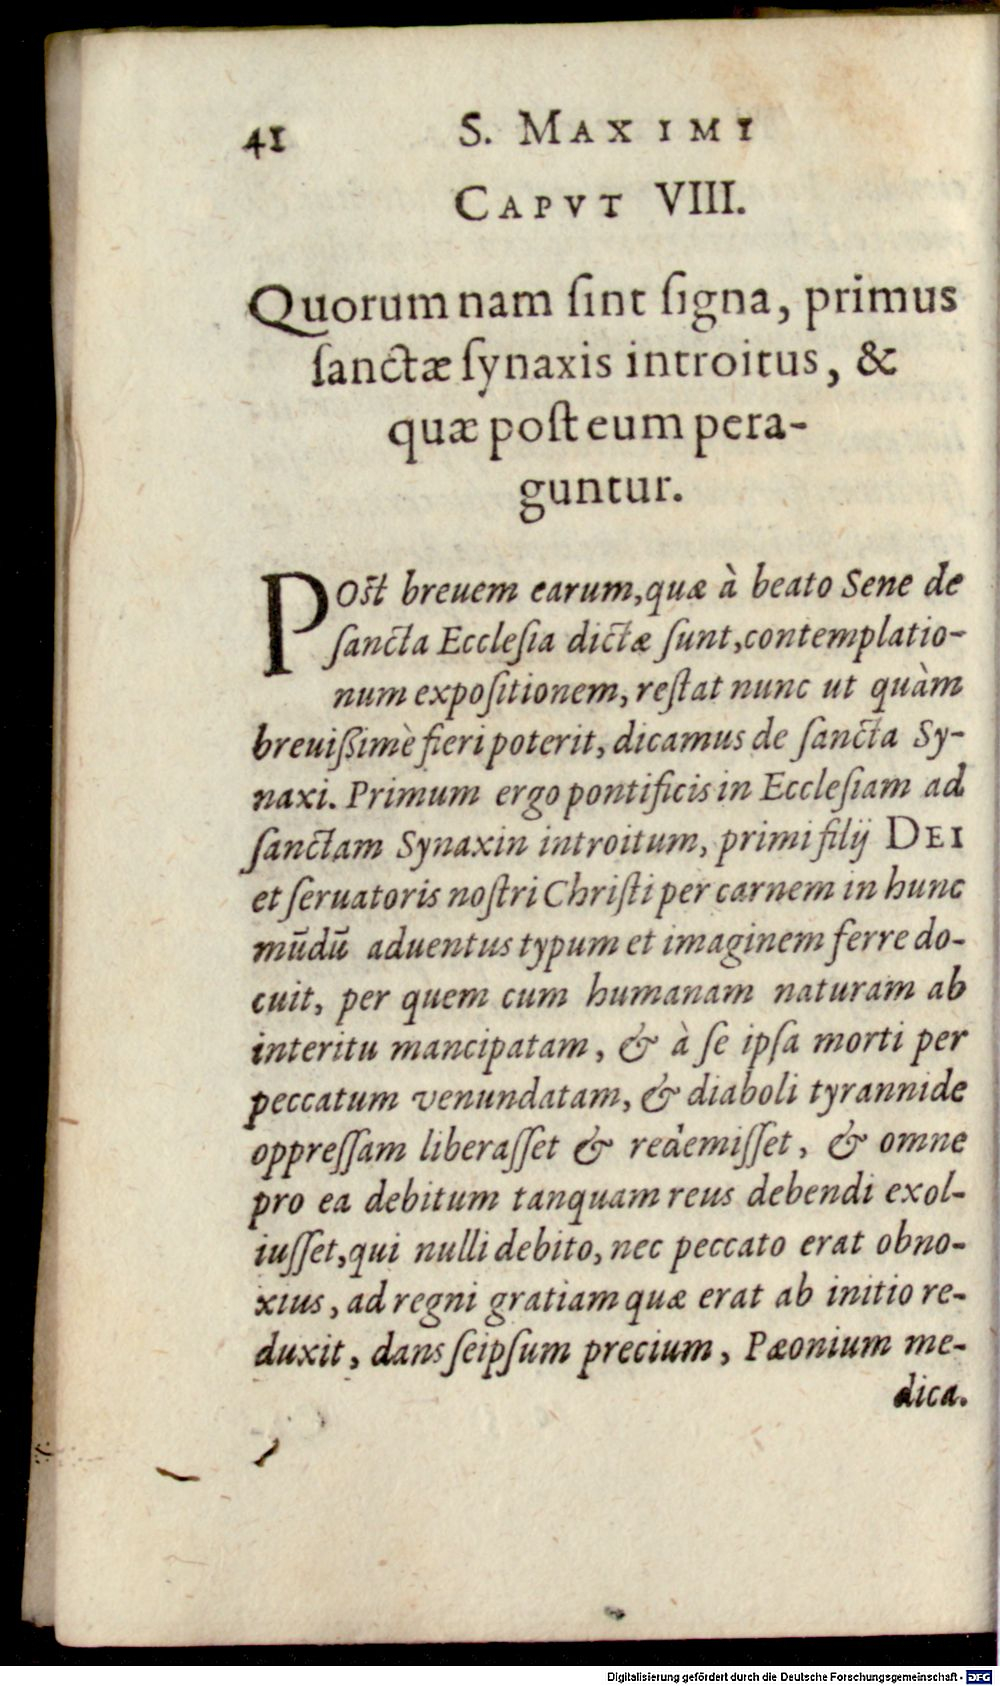 41 S. MAXIMI
CAPVT VIII.
Quorumnam ſint ſigna, primus
ſanctæ ſynaxis introitus, &
quæ poſt eum pera-
guntur.
POſt breuem earum, quæ à beato Sene de
ſancta Eccleſia dictæ ſunt, contemplatio-
num expoſitionem, reſtat nunc ut quàm
breuißimè fieri poterit, dicamus de ſancta Sy-
naxi. Primum ergo pontificis in Eccleſiam ad
ſanctam Synaxin introitum, primi filij DEI
et ſeruatoris noſtri Chriſti per carnem in hunc
mūdū aduentus typum et imaginem ferre do-
cuit, per quem cum humanam naturam ab
interitu mancipatam, & à ſe ipſa morti per
peccatum venundatam, & diaboli tyrannide
oppreſſam liberaſſet & redemiſſet, & omne
pro ea debitum tanquam reus debendi exol-
iuſſet, qui nulli debito, nec peccato erat obno-
xius, ad regni gratiam quæ erat ab initio re-
duxit, dans ſeipſum precium, Pæonium me-
dica.
Digitalisierung gefördert durch die Deutsche Forschungsgemeinschaft - DFG